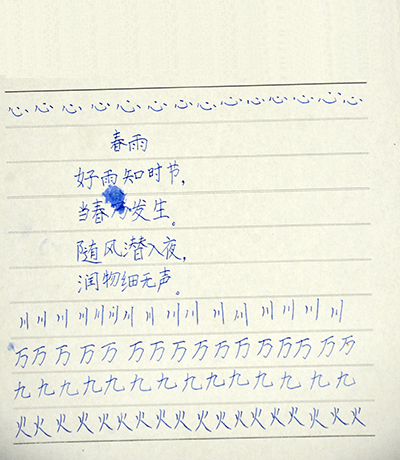 心心心心心心心心心心心心心心
春雨
好雨知时节，
当春乃发生。
随风潜入夜，
润物细无声。
川川川川川川川川川川川川川川川川
万万万万万万万万万万万万万万万万
九九九九九九九九九九九九九九
火火火火火火火火火火火火火火火火火